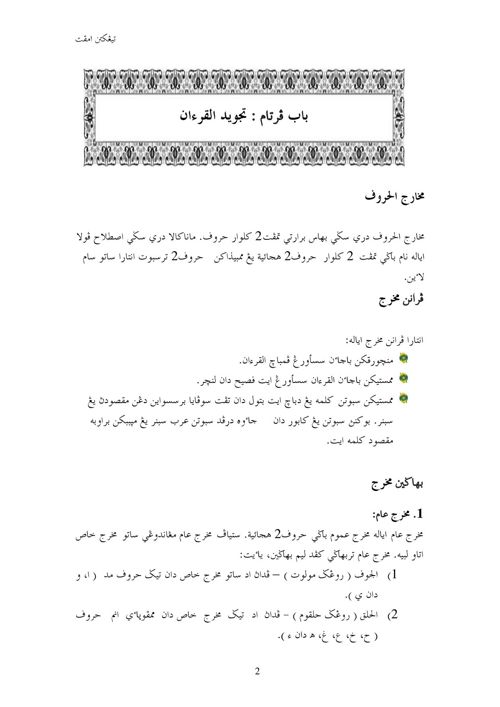 تيڠکتن امڤت
باب ڤرتام : تجويد القرءان
مخارج الحروف
مخارج الحروف دري سݢي بهاس برارتي تمڤت2 کلوار حروف. ماناکالا دري سݢي اصطلاح ڤولا
اياله نام باݢي تمڤت 2 کلوار حروف2 هجائية يڠ ممبيذاکن حروف2 ترسبوت انتارا ساتو سام
لاءين.
ڤرانن مخرج
انتارا ڤرانن مخرج اياله:
منچورقکن باجاءن سسأورڠ ڤمباچ القرءان.
ممستيکن باجاءن القرءان سسأورڠ ايت فصيح دان لنچر.
ممستيکن سبوتن کلمه يڠ دباچ ايت بتول دان تڤت سوڤايا برسسواين دڠن مقصودڽ يڠ
سبنر. بوکنڽ سبوتن يڠ کابور دان جاءوه درڤد سبوتن عرب سبنر يڠ مڽببکن براوبه
مقصود کلمه ايت.
بهاݢين مخرج
1. مخرج عام:
مخرج عام اياله مخرج عموم باݢي حروف2 هجائية. ستياڤ مخرج عام مڠاندوڠي ساتو مخرج خاص
اتاو لبيه. مخرج عام تربهاݢي کڤد ليم بهاݢين، ياءيت:
1) الجوف ( روڠݢ مولوت ) – ڤداڽ اد ساتو مخرج خاص دان تيݢ حروف مد ( ا، و
دان ي ).
2) الحلق ( روڠݢ حلقوم ) – ڤداڽ اد تيݢ مخرج خاص دان ممڤوڽاءي انم حروف
( ح، خ، ع، غ، ه دان ء ).
2